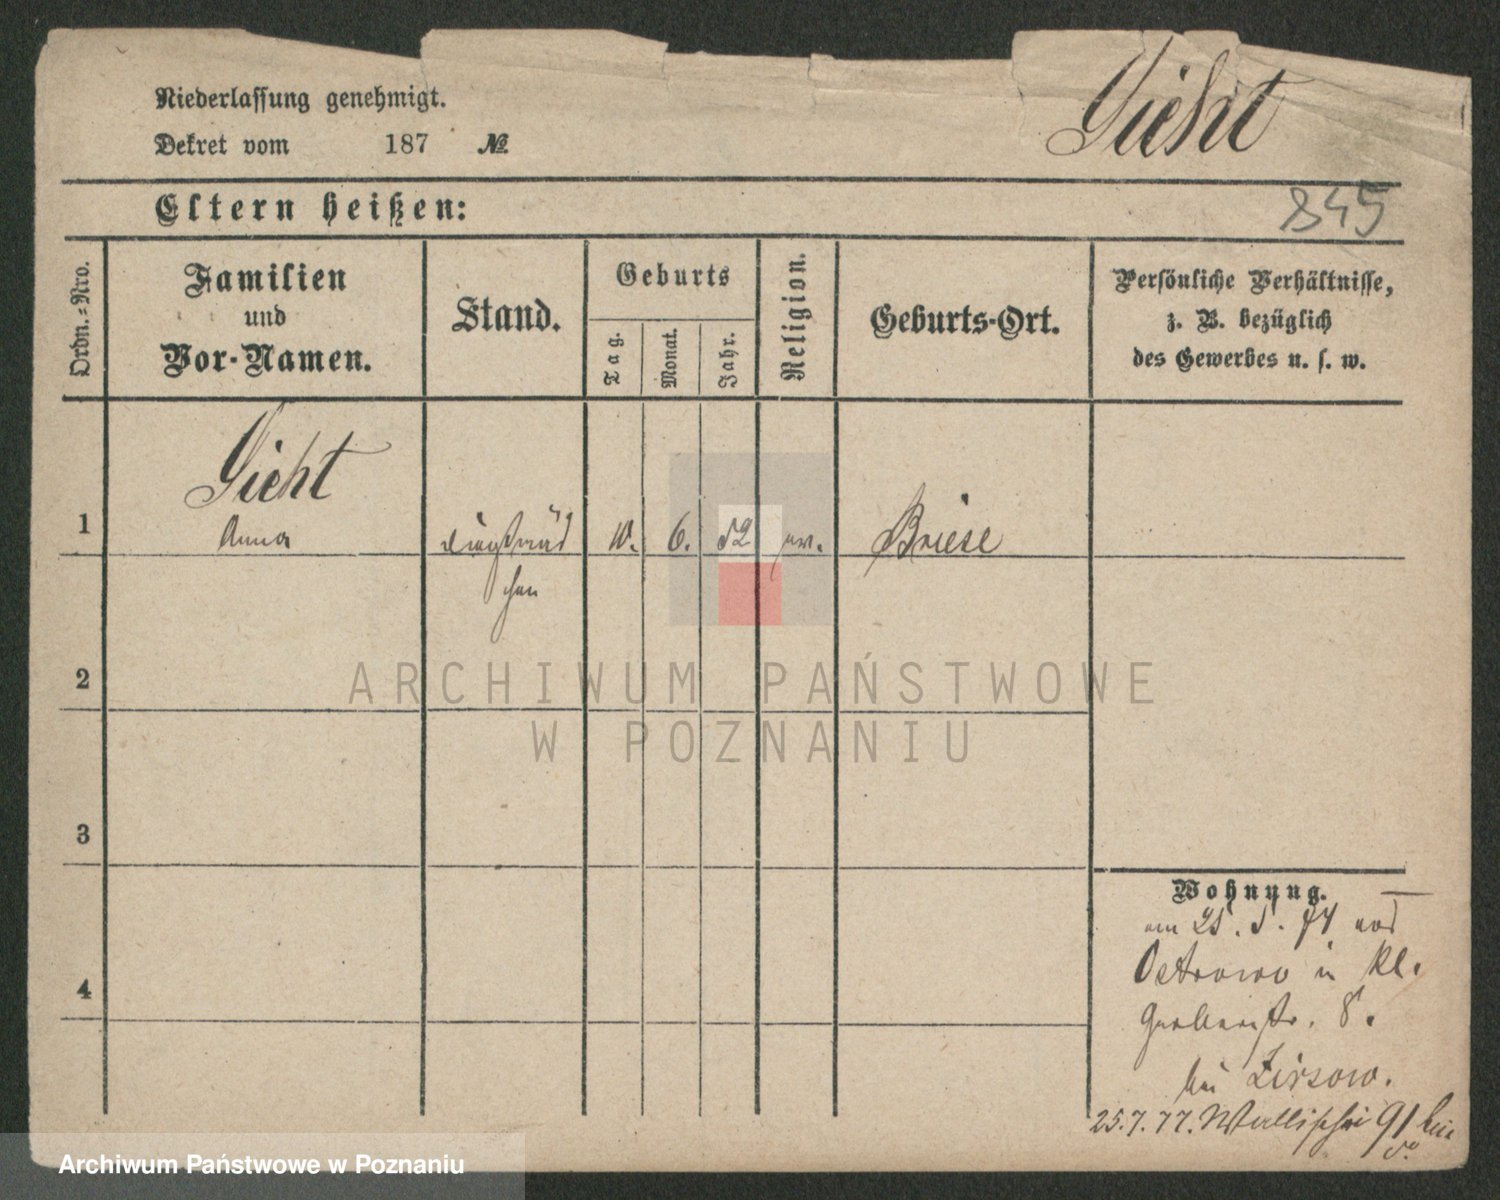 Niederlassung genehmigt.
Dekret vom 187 №
Gicht
Eltern heißen:
845
Ordn.-Nro.
Familien
und
Vor-Namen.
Stand.
Geburts
Tag.
Monat.
Jahr.
Religion.
Geburts-Ort.
Persönliche Verhältnisse,
z. B. bezüglich
des Gewerbes u. s. w.
Gicht
1 Anna Dienstmäd 10. 6. 52 ev. Briese
chen
2
3
4
Wohnung.
am 25. 5. 77 aus
Ostrowo in Kl.
Gerberstr. 8.
bei Zirsow.
25.7.77. Wallischei 91 bei
do
ARCHIWUM PAŃSTWOWE
W POZNANIU
Archiwum Państwowe w Poznaniu